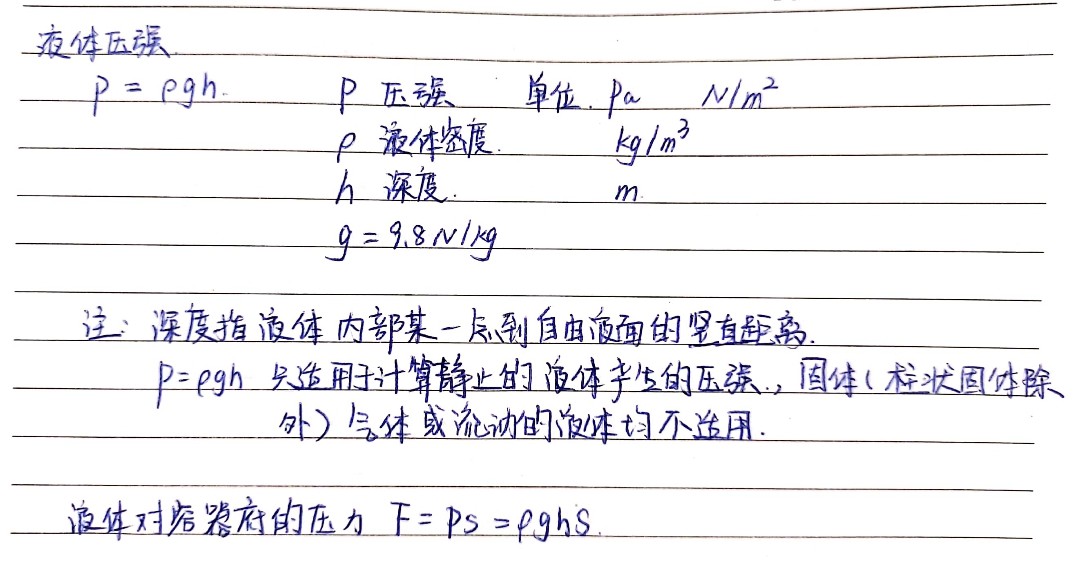 液体压强
P = ρgh. P 压强 单位. Pa N/m²
ρ 液体密度. kg/m³
h 深度. m.
g = 9.8N/kg
注: 深度指液体内部某一点到自由液面的竖直距离.
P=ρgh 只适用于计算静止的液体产生的压强., 固体(柱状固体除
外) 气体或流动的液体均不适用.
液体对容器底的压力 F = PS = ρghS.